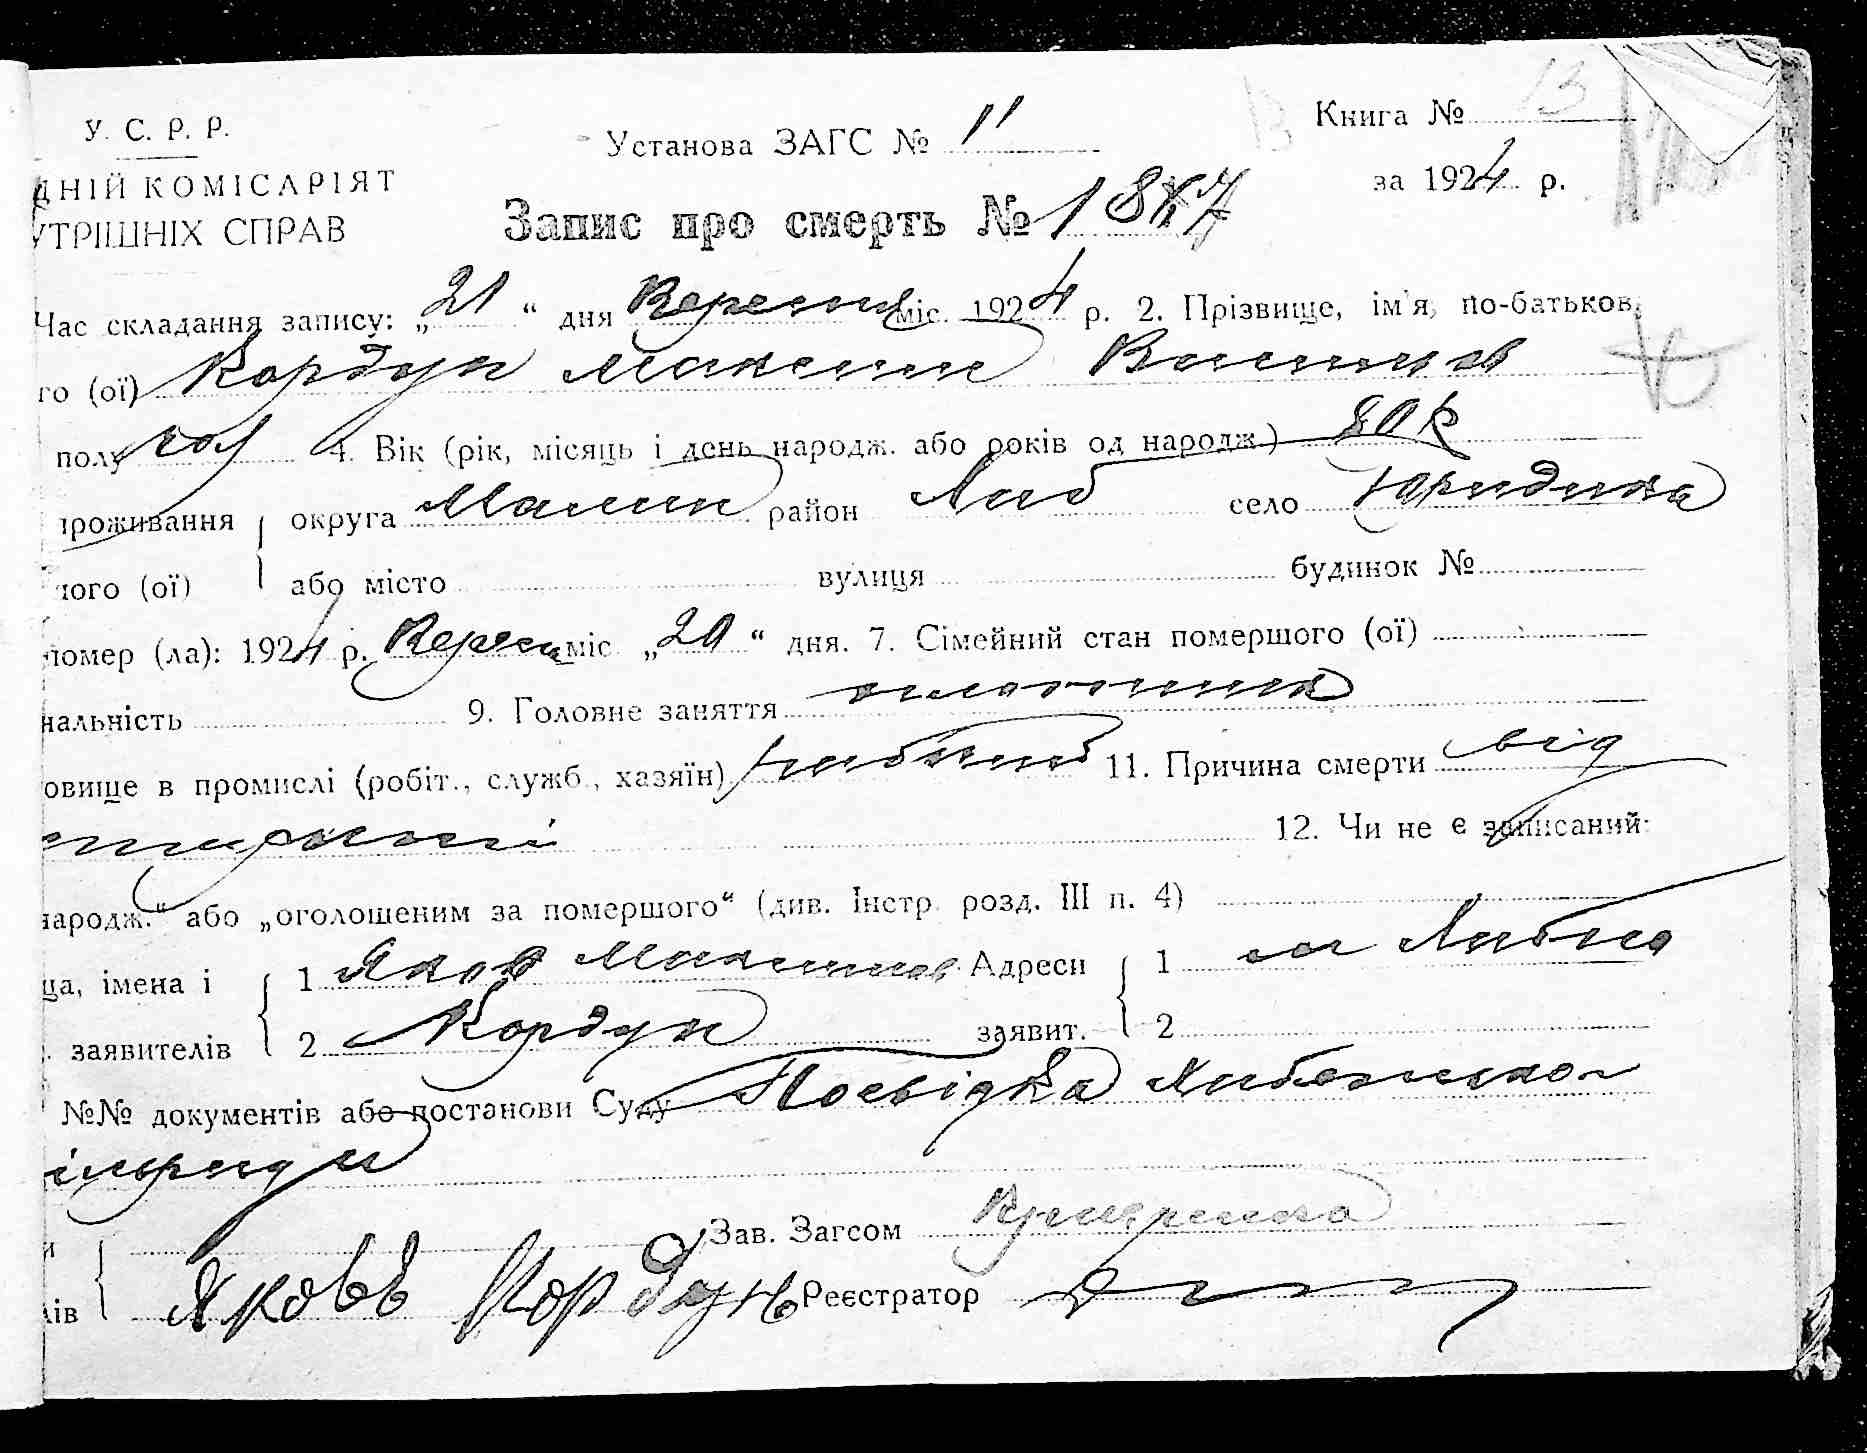 У. С. Р. Р.
Установа ЗАГС № 11
Книга № 13
за 1924 р.
ДНІЙ КОМІСАРІЯТ
УТРІШНІХ СПРАВ
Запис про смерть № 18
Час складання запису: „21“ дня Вересня міс. 1924 р. 2. Прізвище, ім'я, по-батьков.
го (ої) Кордун Максим
полу чол 4. Вік (рік, місяць і день народж. або років од народж.) 80 р
проживання округа Малин район Либ село Юридика
лого (ої) або місто вулиця будинок №
помер (ла): 1924 р. Вересня міс. „20“ дня. 7. Сімейний стан помершого (ої)
нальність 9. Головне заняття
овище в промислі (робіт., служб., хазяїн) 11. Причина смерти від
12. Чи не є записаний:
народж.“ або „оголошеним за помершого“ (див. Інстр. розд. III п. 4)
ца, імена і 1 Яков Максимов Адреси 1
заявителів 2 Кордун заявит. 2
№№ документів або постанови Суду Посвідка
Зав. Загсом
ів Яковъ Кордунъ Реєстратор